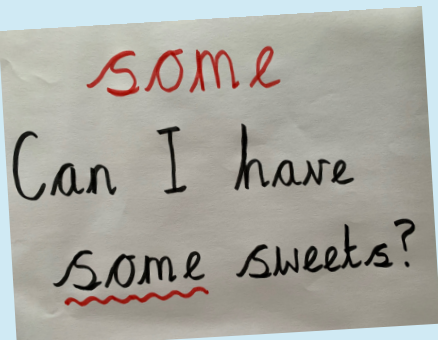 some
Can I have
some sweets?